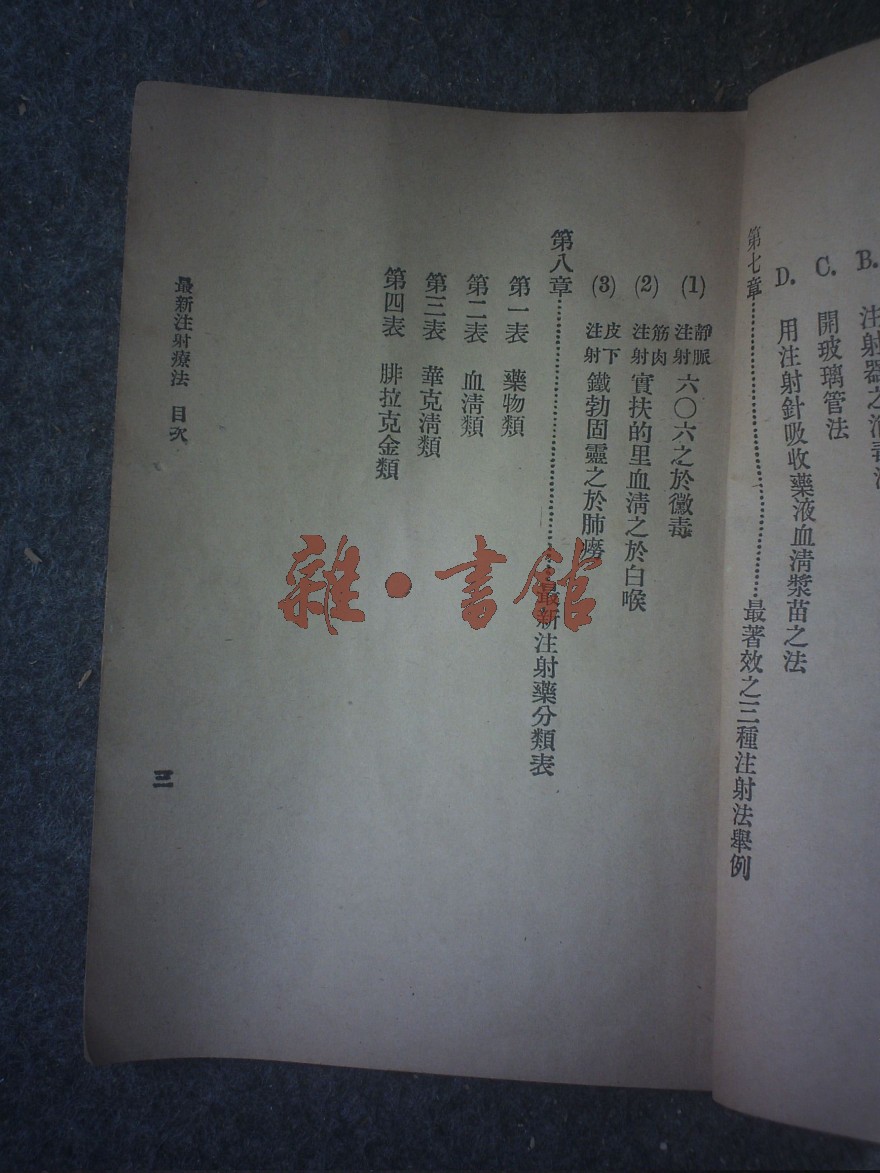 B. 注射器之消毒法
C. 開玻璃管法
D. 用注射針吸收藥液血清漿苗之法
第七章……最著效之三種注射法舉例
(1) 靜脈注射 六〇六之於黴毒
(2) 筋肉注射 實扶的里血清之於白喉
(3) 皮下注射 鐵勃固靈之於肺癆
第八章……最新注射藥分類表
第一表 藥物類
第二表 血清類
第三表 華克清類
第四表 腓拉克金類
最新注射療法 目次
三
雜·書館